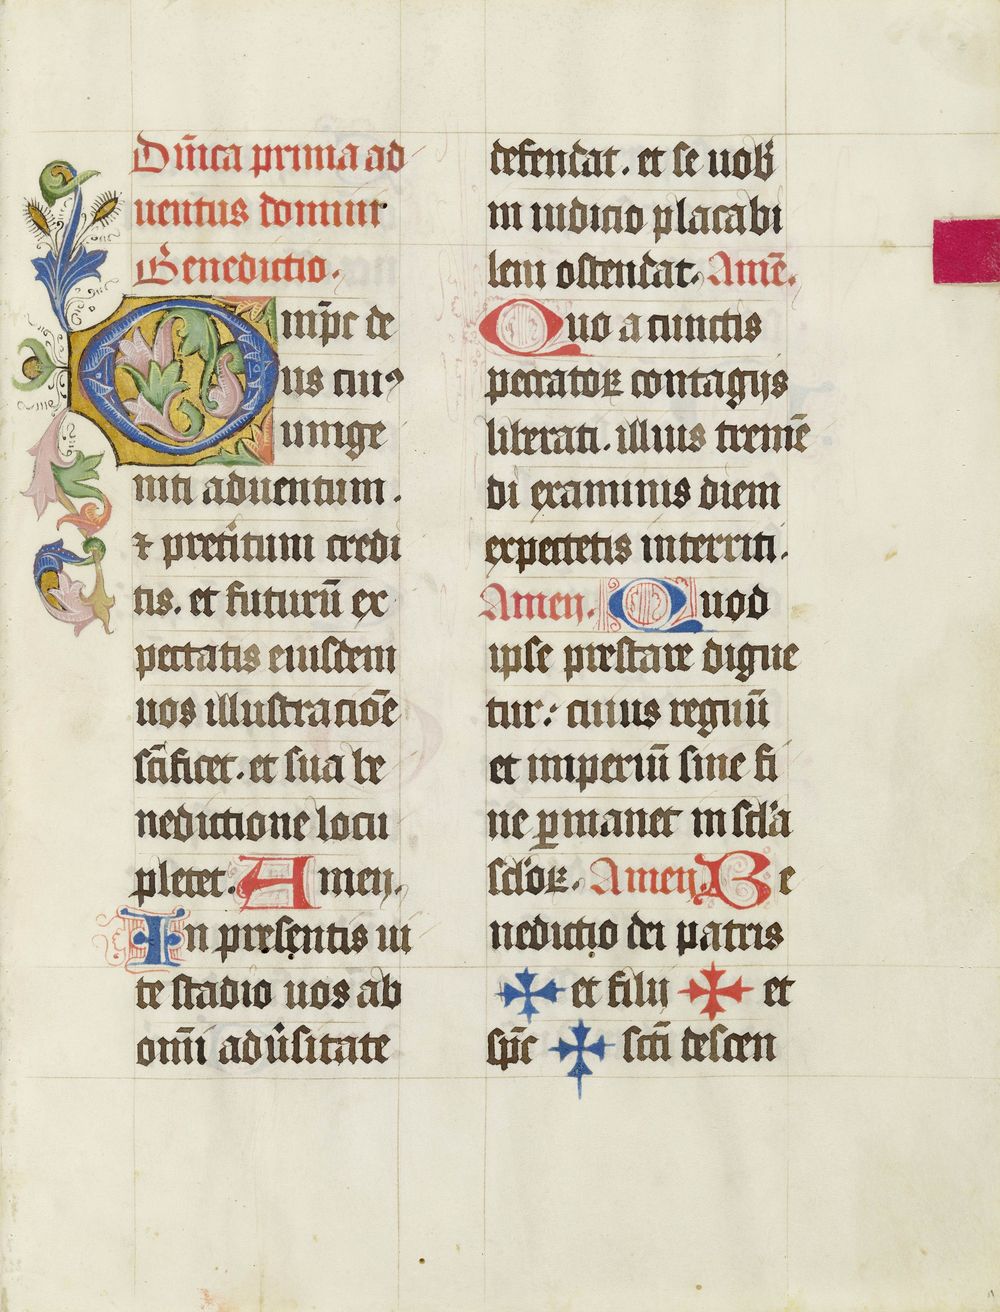 Dn̄ica prima ad
uentus domini
Benedictio.
Omp̄c de
us cuiꝰ
unige
niti aduentum.
⁊ preti̇tum credi
tis. et futurū ex
pectatis eiusdem
uos illustracōe
sc̄ificet. et sua be
nedictione locu
pletet. Amen.
In presentis ui
te stadio uos ab
om̄i adu̇sitate
defendat. et se uob̄
in iudicio placabi
lem ostendat. Amē.
Quo a cunctis
peccatoꝝ contagijs
liberati. illius tremē
di examinis diem
expectetis interriti.
Amen. Quod
ipse prestare digne
tur: cuius regnū
et imperiū sine fi
ne ꝑmanet in scl̄a
scl̄oꝝ. Amen. Be
nedictio dei patris
✠ et filij ✠ et
sp̄c ✠ sc̄ti descen